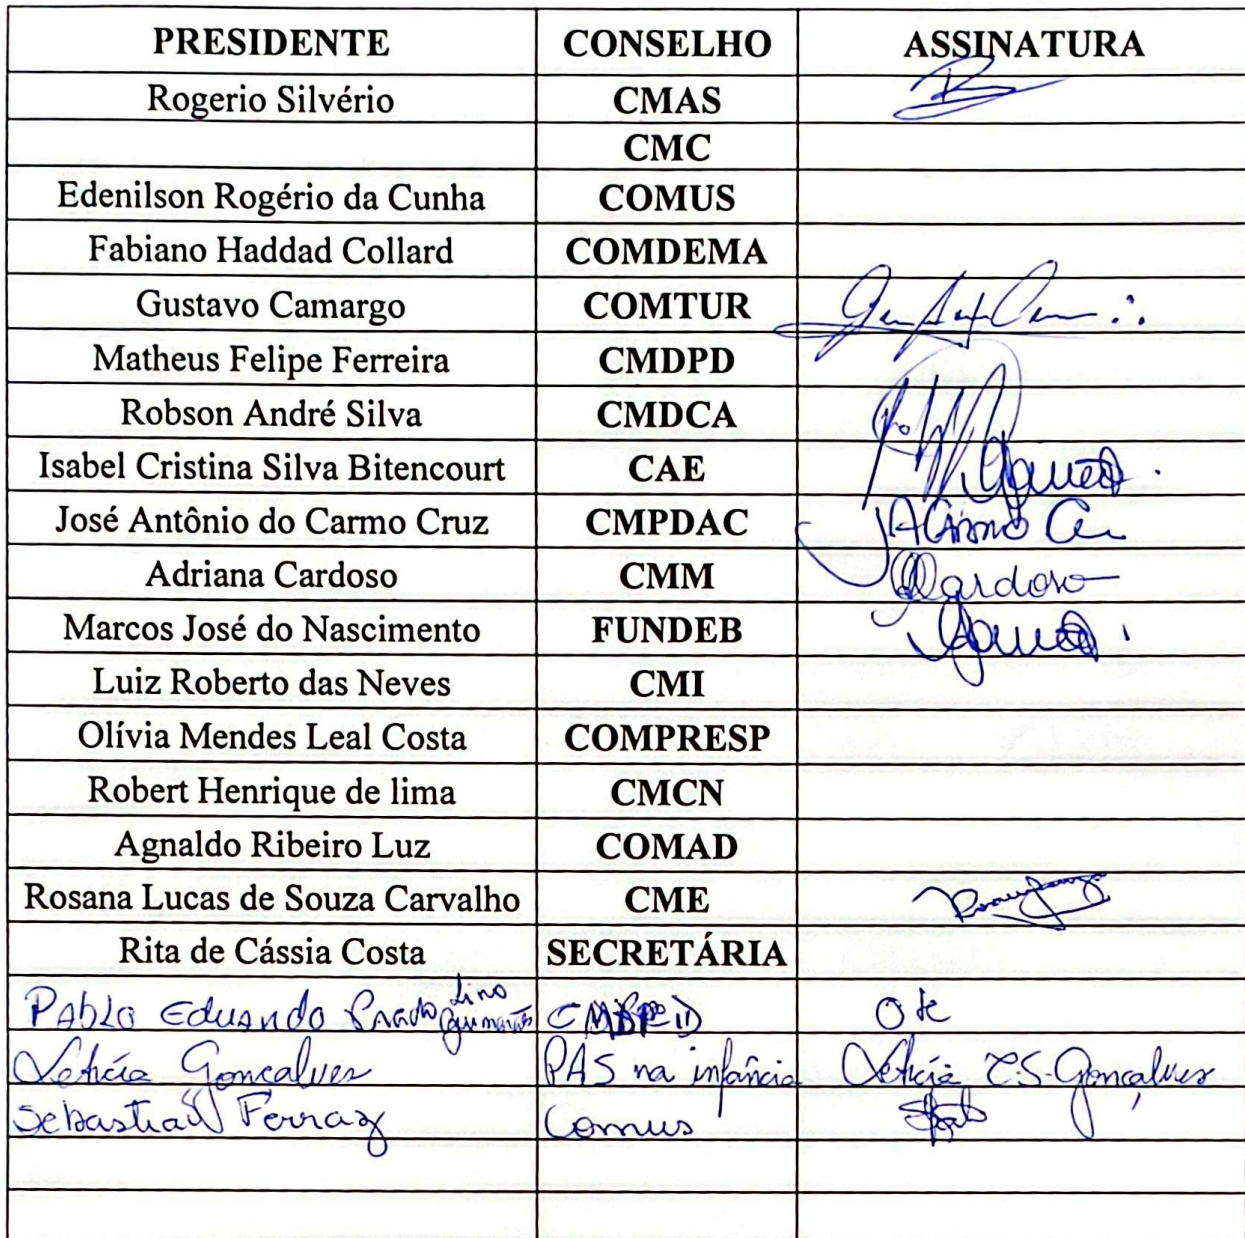 PRESIDENTE CONSELHO ASSINATURA
Rogerio Silvério CMAS
CMC
Edenilson Rogério da Cunha COMUS
Fabiano Haddad Collard COMDEMA
Gustavo Camargo COMTUR
Matheus Felipe Ferreira CMDPD
Robson André Silva CMDCA
Isabel Cristina Silva Bitencourt CAE
José Antônio do Carmo Cruz CMPDAC
Adriana Cardoso CMM Cardoso
Marcos José do Nascimento FUNDEB
Luiz Roberto das Neves CMI
Olívia Mendes Leal Costa COMPRESP
Robert Henrique de lima CMCN
Agnaldo Ribeiro Luz COMAD
Rosana Lucas de Souza Carvalho CME
Rita de Cássia Costa SECRETÁRIA
Pablo Eduardo Prado Lino Guimarães
Letícia Gonçalves PAS na infância Letícia C.S. Gonçalves
Sebastião Ferraz Comus